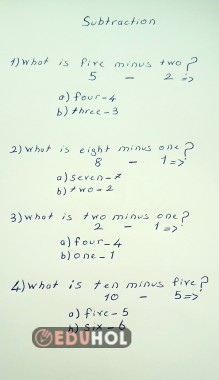 Subtraction
1) What is five minus two?
5 - 2 =>
a) four - 4
b) three - 3
2) What is eight minus one?
8 - 1 =>
a) seven - 7
b) two - 2
3) What is two minus one?
2 - 1 =>
a) four - 4
b) one - 1
4) What is ten minus five?
10 - 5 =>
a) five - 5
b) six - 6
EDUHOL